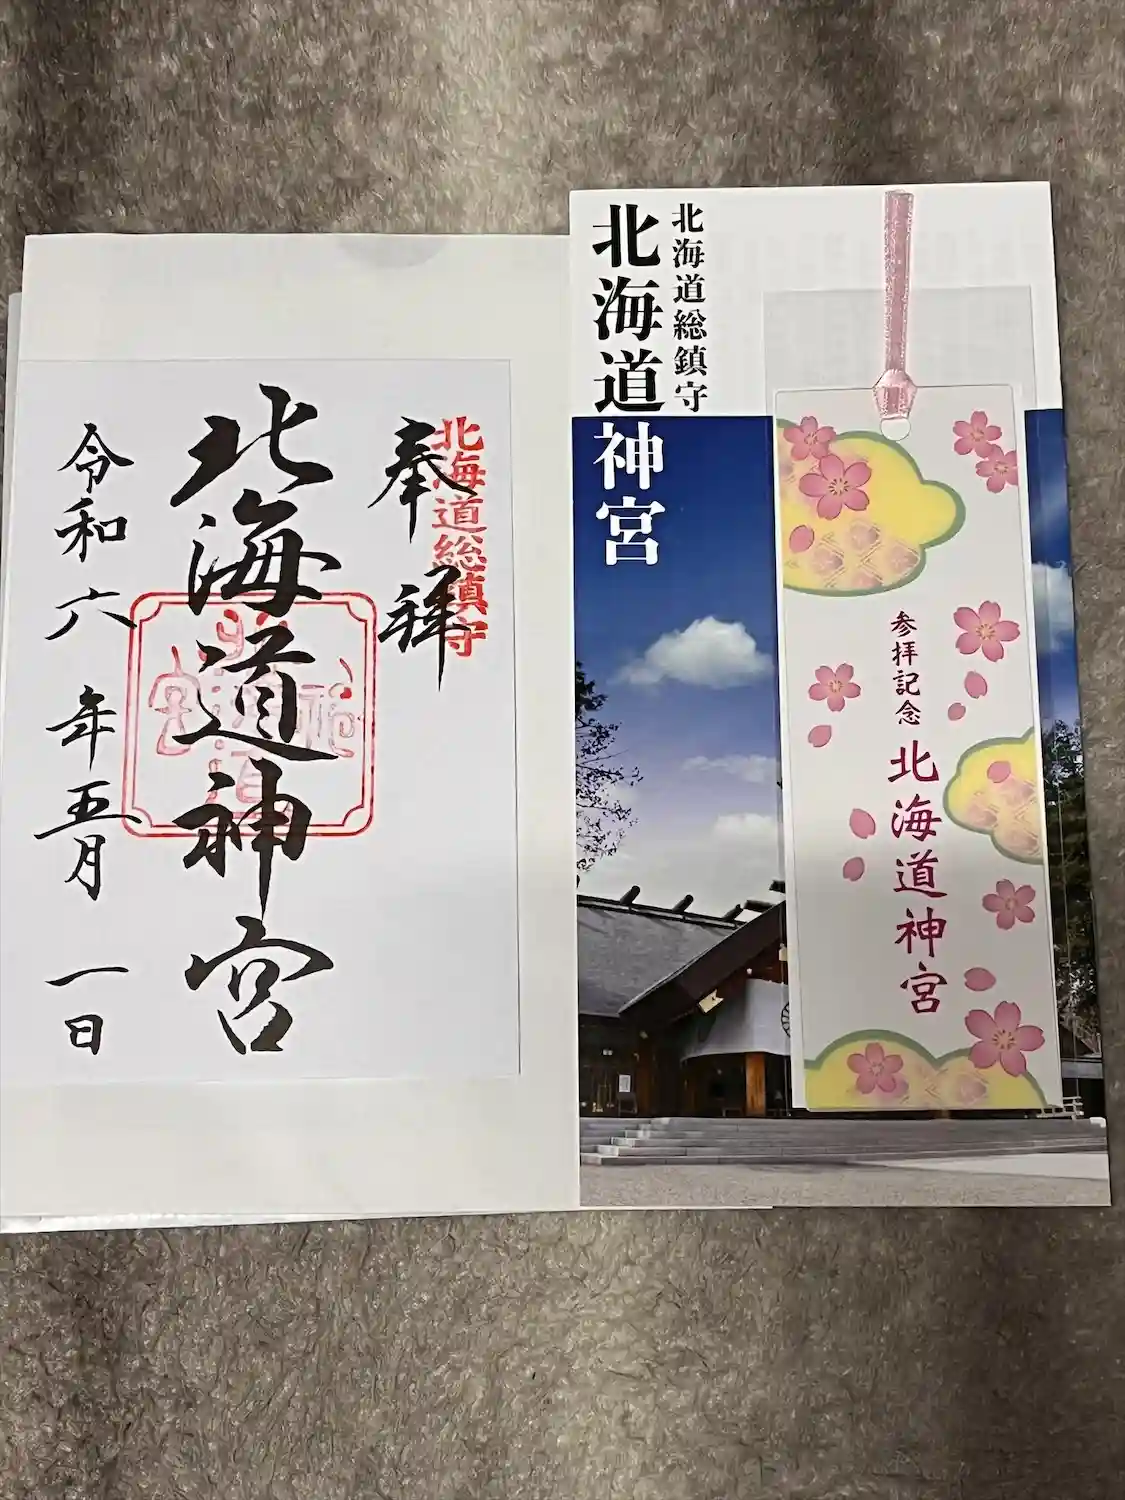 北海道総鎮守
奉拝
北海道神宮
令和六年五月一日
北海道総鎮守
北海道神宮
参拝記念
北海道神宮